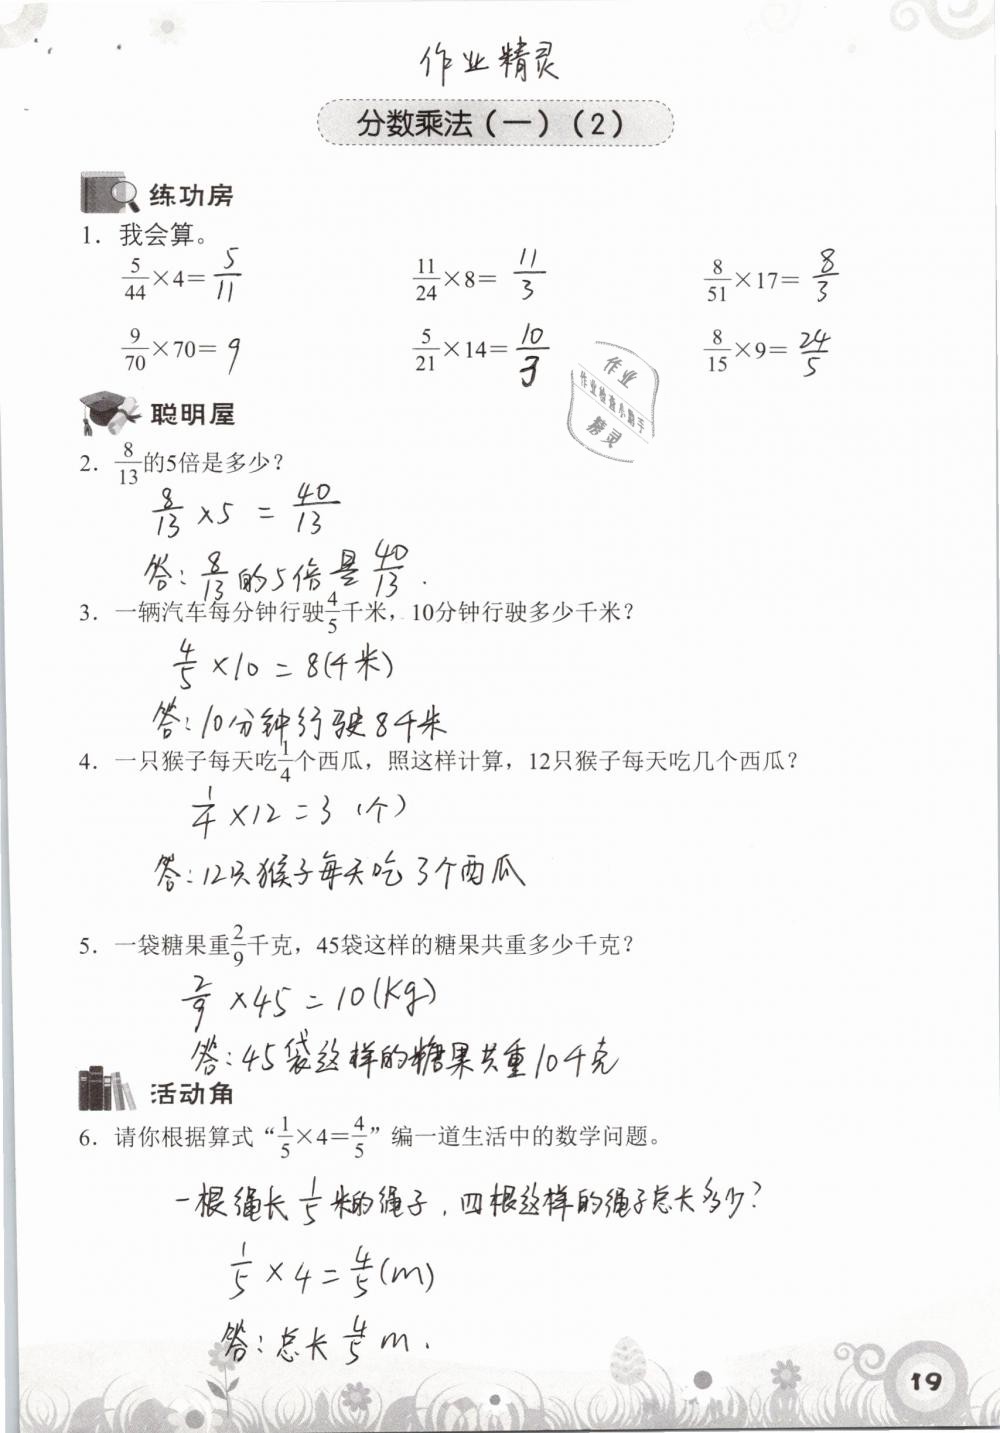 作业精灵
分数乘法（一）（2）
练功房
1. 我会算。
5/44×4= 5/11  11/24×8= 11/3  8/51×17= 8/3
9/70×70= 9  5/21×14= 10/3  8/15×9= 24/5
作业
作业检查小助手
精灵
聪明屋
2. 8/13的5倍是多少？
8/13 ×5 = 40/13
答：8/13的5倍是40/13.
3. 一辆汽车每分钟行驶4/5千米，10分钟行驶多少千米？
4/5 ×10 = 8(千米)
答：10分钟行驶8千米
4. 一只猴子每天吃1/4个西瓜，照这样计算，12只猴子每天吃几个西瓜？
1/4 ×12 = 3 (个)
答：12只猴子每天吃3个西瓜
5. 一袋糖果重2/9千克，45袋这样的糖果共重多少千克？
2/9 ×45 = 10(kg)
答：45袋这样的糖果共重10千克
活动角
6. 请你根据算式“1/5×4=4/5”编一道生活中的数学问题。
一根绳长1/5米的绳子，四根这样的绳子总长多少？
1/5 × 4 = 4/5(m)
答：总长4/5m.
19